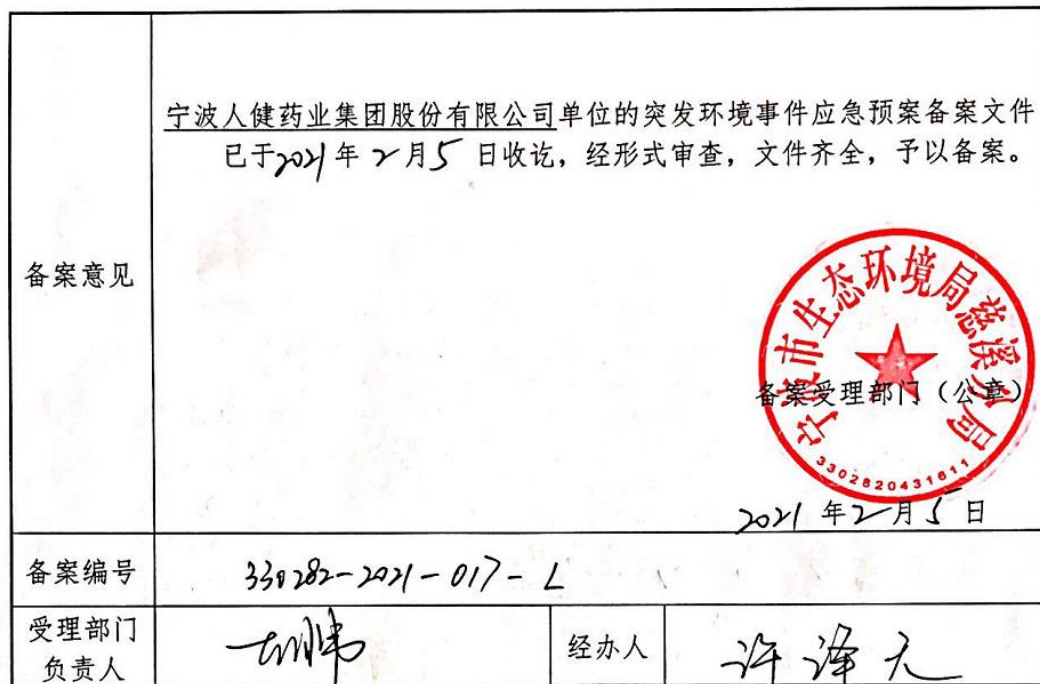 宁波人健药业集团股份有限公司单位的突发环境事件应急预案备案文件
已于2021年2月5日收讫，经形式审查，文件齐全，予以备案。
备案意见
宁波市生态环境局慈溪分局
备案受理部门（公章）
3302820431611
2021年2月5日
备案编号
330282-2021-017-L
受理部门
负责人
经办人
许泽元